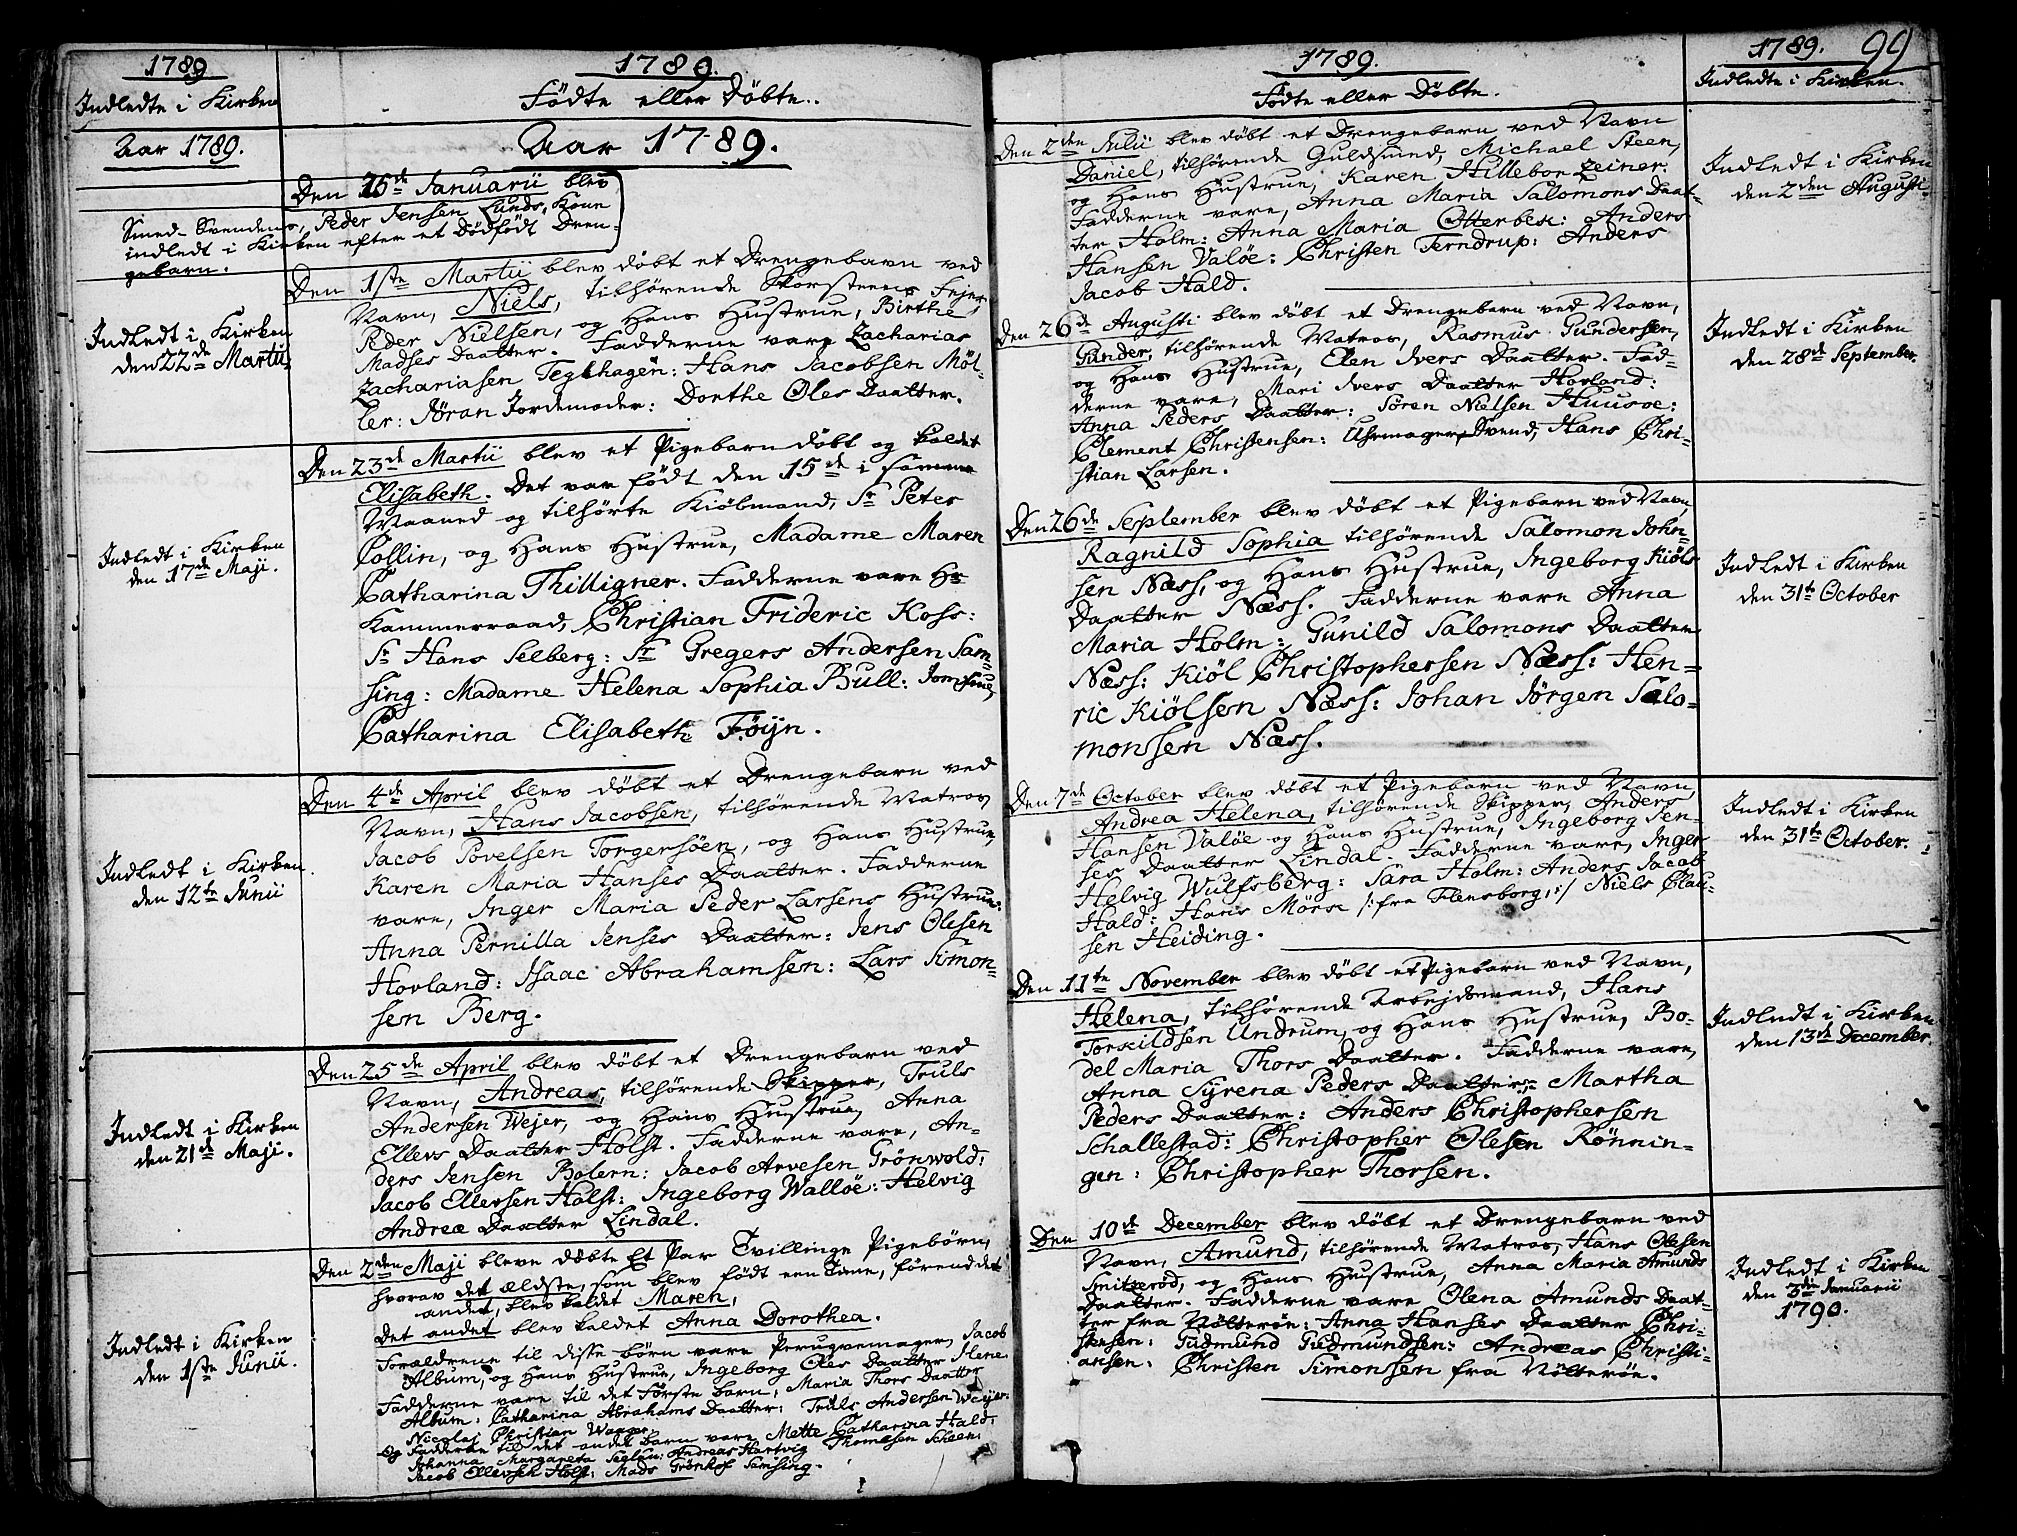 1789
Indledte i Kirken
1789.
Födte eller Döbte.
Aar 1789.
Aar 1789.
Den 25de Januarii blev
Smed-Svendens, Peder Jensen Lunds, Kone
indledt i Kirken efter et Dödfödt Dren-
gebarn.
Indledt i Kirken
den 22de Martii
Den 1ste Martii blev döbt et Drengebarn ved
Navn, Niels, tilhörende Skorsteens Fejer
Peder Nielsen, og Hans Hustrue, Birthe
Madses Daatter. Fadderne vare Zacharias
Zachariasen Teglhagen: Hans Jacobsen Möl-
ler: Jöran Jordemoder: Dorthe Oles Daatter.
Indledt i Kirken
den 17de Maji.
Den 23de Martii blev et Pigebarn döbt og kaldet
Elisabeth. Det var födt den 15de i samme
Maaned og tilhörte Kiöbmand, Sr Peter
Collin, og Hans Hustrue, Madame Maren
Catharina Thilligner. Fadderne vare Hr
Kammerraad, Christian Frideric Koss:
Sr Hans Selberg: Sr Gregers Andersen Sam-
sing: Madame Helena Sophia Bull: Jomfrue,
Catharina Elisabeth Föijn.
Indledt i Kirken
den 12te Junii
Den 4de April blev döbt et Drengebarn ved
Navn, Hans Jacobsen, tilhörende Matros,
Jacob Povelsen Torgersöen, og Hans Hustrue,
Karen Maria Hanses Daatter. Fadderne
vare, Inger Maria Peder Larsens Hustrue:
Anna Pernilla Jenses Daatter: Jens Olesen
Hovland: Isaac Abrahamsen: Lars Simon-
sen Berg.
Indledt i Kirken
den 21de Maji.
Den 25de April blev döbt et Drengebarn ved
Navn, Andreas, tilhörende Skipper, Truls
Andersen Wejer, og Hans Hustrue, Anna
Ellevs Daatter Holst. Fadderne vare, An-
ders Jensen Bolern: Jacob Arvesen Grönwold:
Jacob Ellevsen Holst: Ingeborg Wallöe: Helvig
Andreæ Daatter Lindal.
Indledt i Kirken
den 1ste Junii.
Den 2den Maji bleve döbte Et Par Tvillinge Pigebörn,
hvorav det ældste, som blev födt een Time, förend det
andet, blev kaldet Maren,
Det andet blev kaldet Anna Dorothea.
Foraldrene til disse börn vare Perugvemager, Jacob
Album, og Hans Hustrue, Ingeborg Oles Daatter.
Fadderne vare til det Förste barn, Maria Thors Daatter
Album: Catharina Abrahams Daatter: Truls Andersen Weyer:
Nicolaj Christian
Og Fadderne til det andet barn vare, Mette Catharina Hald:
Johanna Margareta Seglau: Andreas Hartvig Thomesen Scheen:
Jacob Ellevsen Holst: Mads Grönhof Samsing.
1789.
Födte eller Döbte.
1789. 99
Indledte i Kirken.
Den 2den Julii blev döbt et Drengebarn ved Navn
Daniel, tilhörende Guldsmed, Michael Steen,
og Hans Hustrue, Karen Hillebor Zeiner.
Fadderne vare, Anna Maria Salomons Daat-
ter Holm: Anna Maria Otterbex: Anders
Hansen Valöe: Christen Terndrup: Anders
Jacob Hald.
Indledt i Kirken
den 2den Augusti
Den 26de Augusti blev döbt et Drengebarn ved Navn,
Gunder, tilhörende Matros, Rasmus Gundersen,
og Hans Hustrue, Elen Ivers Daatter. Fad-
derne vare, Mari Ivers Daatter Hovland:
Anna Peders Daatter: Sören Nielsen Huusoe:
Clement Christensen: Uhrmager Svend, Hans Chri-
stian Larsen.
Indledt i Kirken
den 28de September.
Den 26de September blev döbt et Pigebarn ved Navn,
Ragnild Sophia tilhörende Salomon John-
sen Næss, og Hans Hustrue, Ingeborg Kiöls
Daatter Næss. Fadderne vare Anna
Maria Holm: Gunild Salomons Daatter
Næss: Kiöl Christophersen Næss: Hen-
ric Kiölsen Næss: Johan Jörgen Salo-
monssen Næss.
Indledt i Kirken
den 31te October
Den 7de October blev döbt et Pigebarn ved Navn,
Andrea Helena, tilhörende Skipper, Anders
Hansen Valöe og Hans Hustrue, Ingeborg Jen-
ses Daatter Lindal. Fadderne vare, Inger
Helvig Wulfsberg: Sara Holm: Anders Jacob
Hald: Hans Mörse /: fra Flensborg, :/ Niels Clau-
sen Heiding.
Indledt i Kirken
den 31te October.
Den 11te November blev döbt et Pigebarn ved Navn,
Helena, tilhörende Arbejdsmand, Hans
Torkildsen Undrum, og Hans Hustrue, Bo-
del Maria Thors Daatter. Fadderne vare,
Anna Syrena Peders Daatter: Martha
Peders Daatter: Anders Christophersen
Schallestad: Christopher Olesen Rönnin-
gen: Christopher Thorsen.
Indledt i Kirken
den 13de December.
Den 10de December blev döbt et Drengebarn ved
Navn, Amund, tilhörende Matros, Hans Olesen
Smitseröd, og Hans Hustrue, Anna Maria Amunds
Daatter. Fadderne vare Olena Amunds Daat-
ter fra Nötteröe: Anna Hanses Daatter Chri-
stensen: Gudmund Gudmundsen: Andreas Christi-
ansen: Christen Simonssen fra Nötteröe.
Indledt i Kirken
den 3die Januarii
1790.